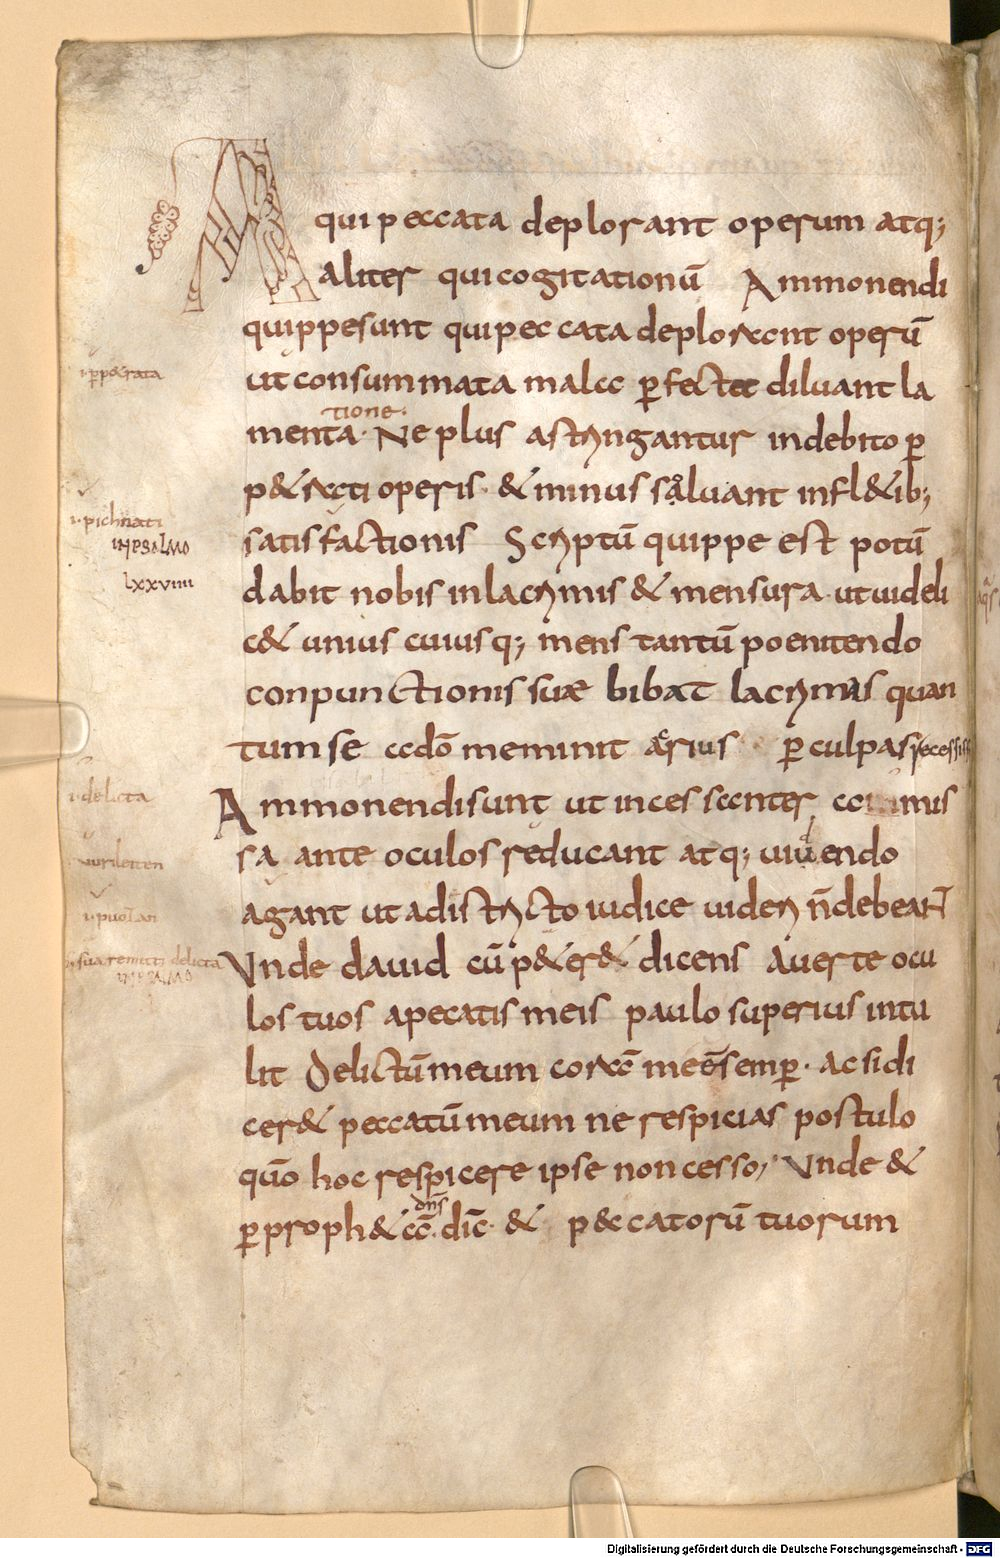 A qui peccata deplorant operum atq;
aliter qui cogitationū Ammonendi
quippe sunt qui peccata deplorant operū
ut consummata mala ꝑfecta diluant la
tione
menta. Ne plus astringantur in debito ꝑ
p&rati operis. & minus saluant in fl&ib;
satisfactionis Scriptū quippe est potū
dabit nobis in lacrimis & mensura. ut uideli
c& unius cuiusq; mens tantū poenitendo
conpunctionis suae bibat lacrimas quan
tum se a dō meminit ꝑ culpas recessiss
Ammonendi sunt ut incessanter
sa ante oculos reducant atq; uiuendo
agant ut a districto iudice uideri n̄ debeant
Unde dauid cū p&er& dicens Auerte ocu
los tuos a pecatis meis paulo superius intu
lit Delictū meum corā mē semꝑ. Ac si di
cer& peccatū meum ne respicias postulo
quō hoc respicere ipse non cesso, Unde &
dn̄s
ꝑ proph&ā. dic̄. & peccatorū tuorum
in psalmo
lxxviiii
i. delicta
i. puolan
sua remitti delicta
in psalmo
Digitalisierung gefördert durch die Deutsche Forschungsgemeinschaft - DFG